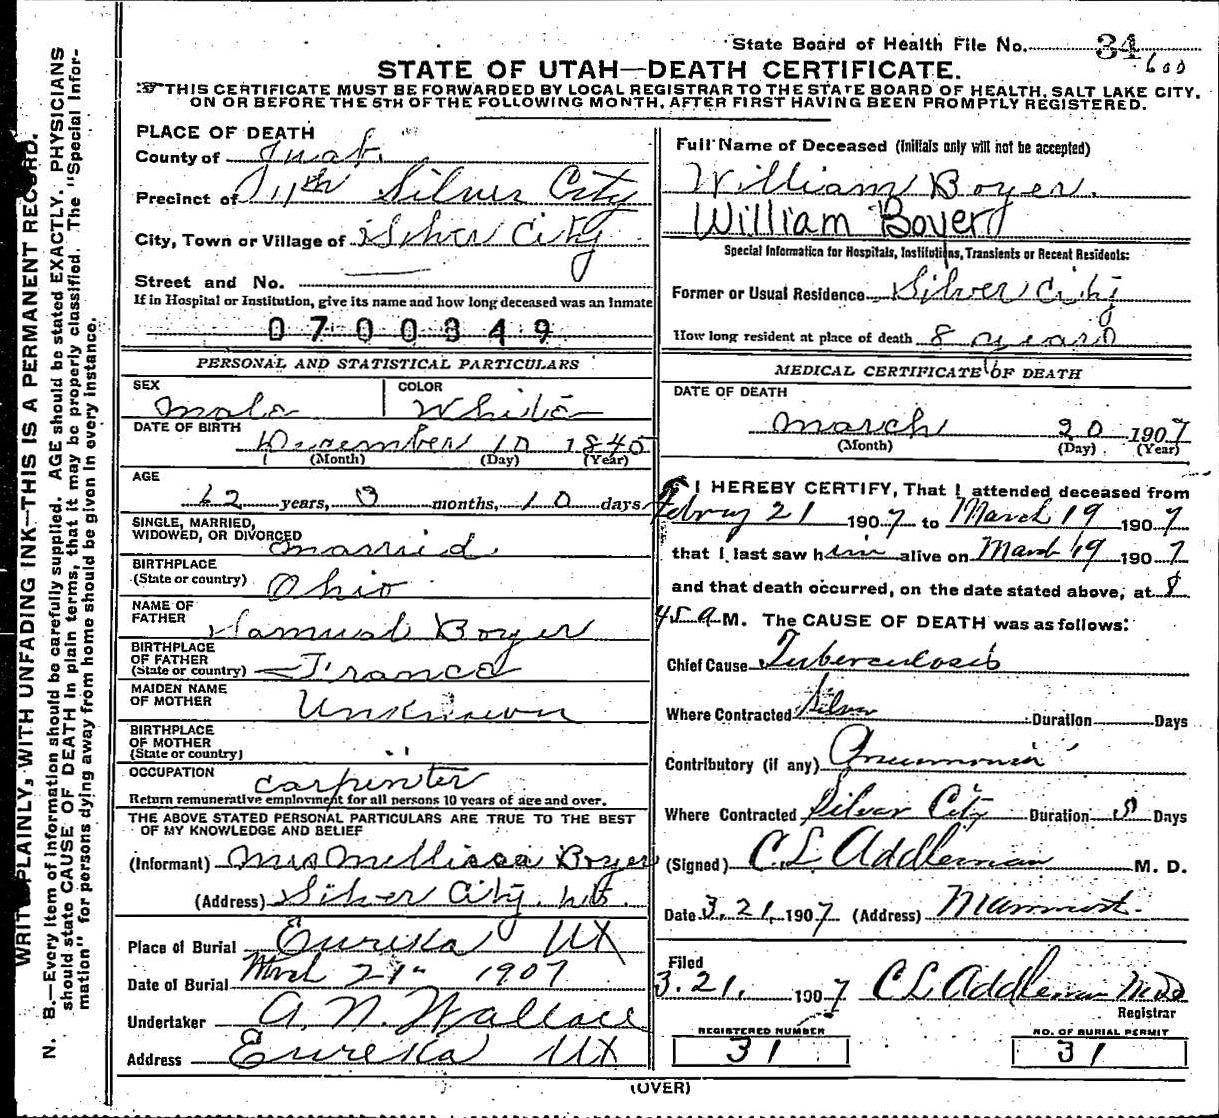 State Board of Health File No. 34
600
STATE OF UTAH—DEATH CERTIFICATE.
THIS CERTIFICATE MUST BE FORWARDED BY LOCAL REGISTRAR TO THE STATE BOARD OF HEALTH, SALT LAKE CITY,
ON OR BEFORE THE 5TH OF THE FOLLOWING MONTH, AFTER FIRST HAVING BEEN PROMPTLY REGISTERED.
WRITE PLAINLY, WITH UNFADING INK—THIS IS A PERMANENT RECORD.
N. B.—Every item of information should be carefully supplied. AGE should be stated EXACTLY. PHYSICIANS
should state CAUSE OF DEATH in plain terms, that it may be properly classified. The "Special Infor-
mation" for persons dying away from home should be given in every instance.
PLACE OF DEATH
County of Juab
Precinct of Silver City
City, Town or Village of Silver City
Street and No.
If in Hospital or Institution, give its name and how long deceased was an inmate
0700349
PERSONAL AND STATISTICAL PARTICULARS
SEX Male
COLOR White
DATE OF BIRTH December 10 1845
(Month) (Day) (Year)
AGE
62 years, 3 months, 10 days
SINGLE, MARRIED,
WIDOWED, OR DIVORCED married
BIRTHPLACE
(State or country) Ohio
NAME OF
FATHER Samual Boyer
BIRTHPLACE
OF FATHER
(State or country) France
MAIDEN NAME
OF MOTHER Unknown
BIRTHPLACE
OF MOTHER
(State or country) "
OCCUPATION carpenter
Return remunerative employment for all persons 10 years of age and over.
THE ABOVE STATED PERSONAL PARTICULARS ARE TRUE TO THE BEST
OF MY KNOWLEDGE AND BELIEF
(Informant) Mrs Mellissa Boyer
(Address) Silver City. Ut.
Place of Burial Eureka Ut
Date of Burial 21 1907
Undertaker A. N. Wallace
Address Eureka Ut
Full Name of Deceased (Initials only will not be accepted)
William Boyer.
William Boyer
Special Information for Hospitals, Institutions, Transients or Recent Residents:
Former or Usual Residence Silver City
How long resident at place of death 8 years
MEDICAL CERTIFICATE OF DEATH
DATE OF DEATH
March 20 1907
(Month) (Day) (Year)
I HEREBY CERTIFY, That I attended deceased from
21 1907 to March 19 1907
that I last saw him alive on March 19 1907
and that death occurred, on the date stated above, at 8
45 A M. The CAUSE OF DEATH was as follows:
Chief Cause Tuberculosis
Where Contracted Silver Duration Days
Contributory (if any) Pneumonia
Where Contracted Silver City Duration 8 Days
(Signed) C L Addleman M. D.
Date 3.21, 1907 (Address)
Filed
3.21. 1907 C L Addleman M D
Registrar
REGISTERED NUMBER
31
NO. OF BURIAL PERMIT
31
(OVER)